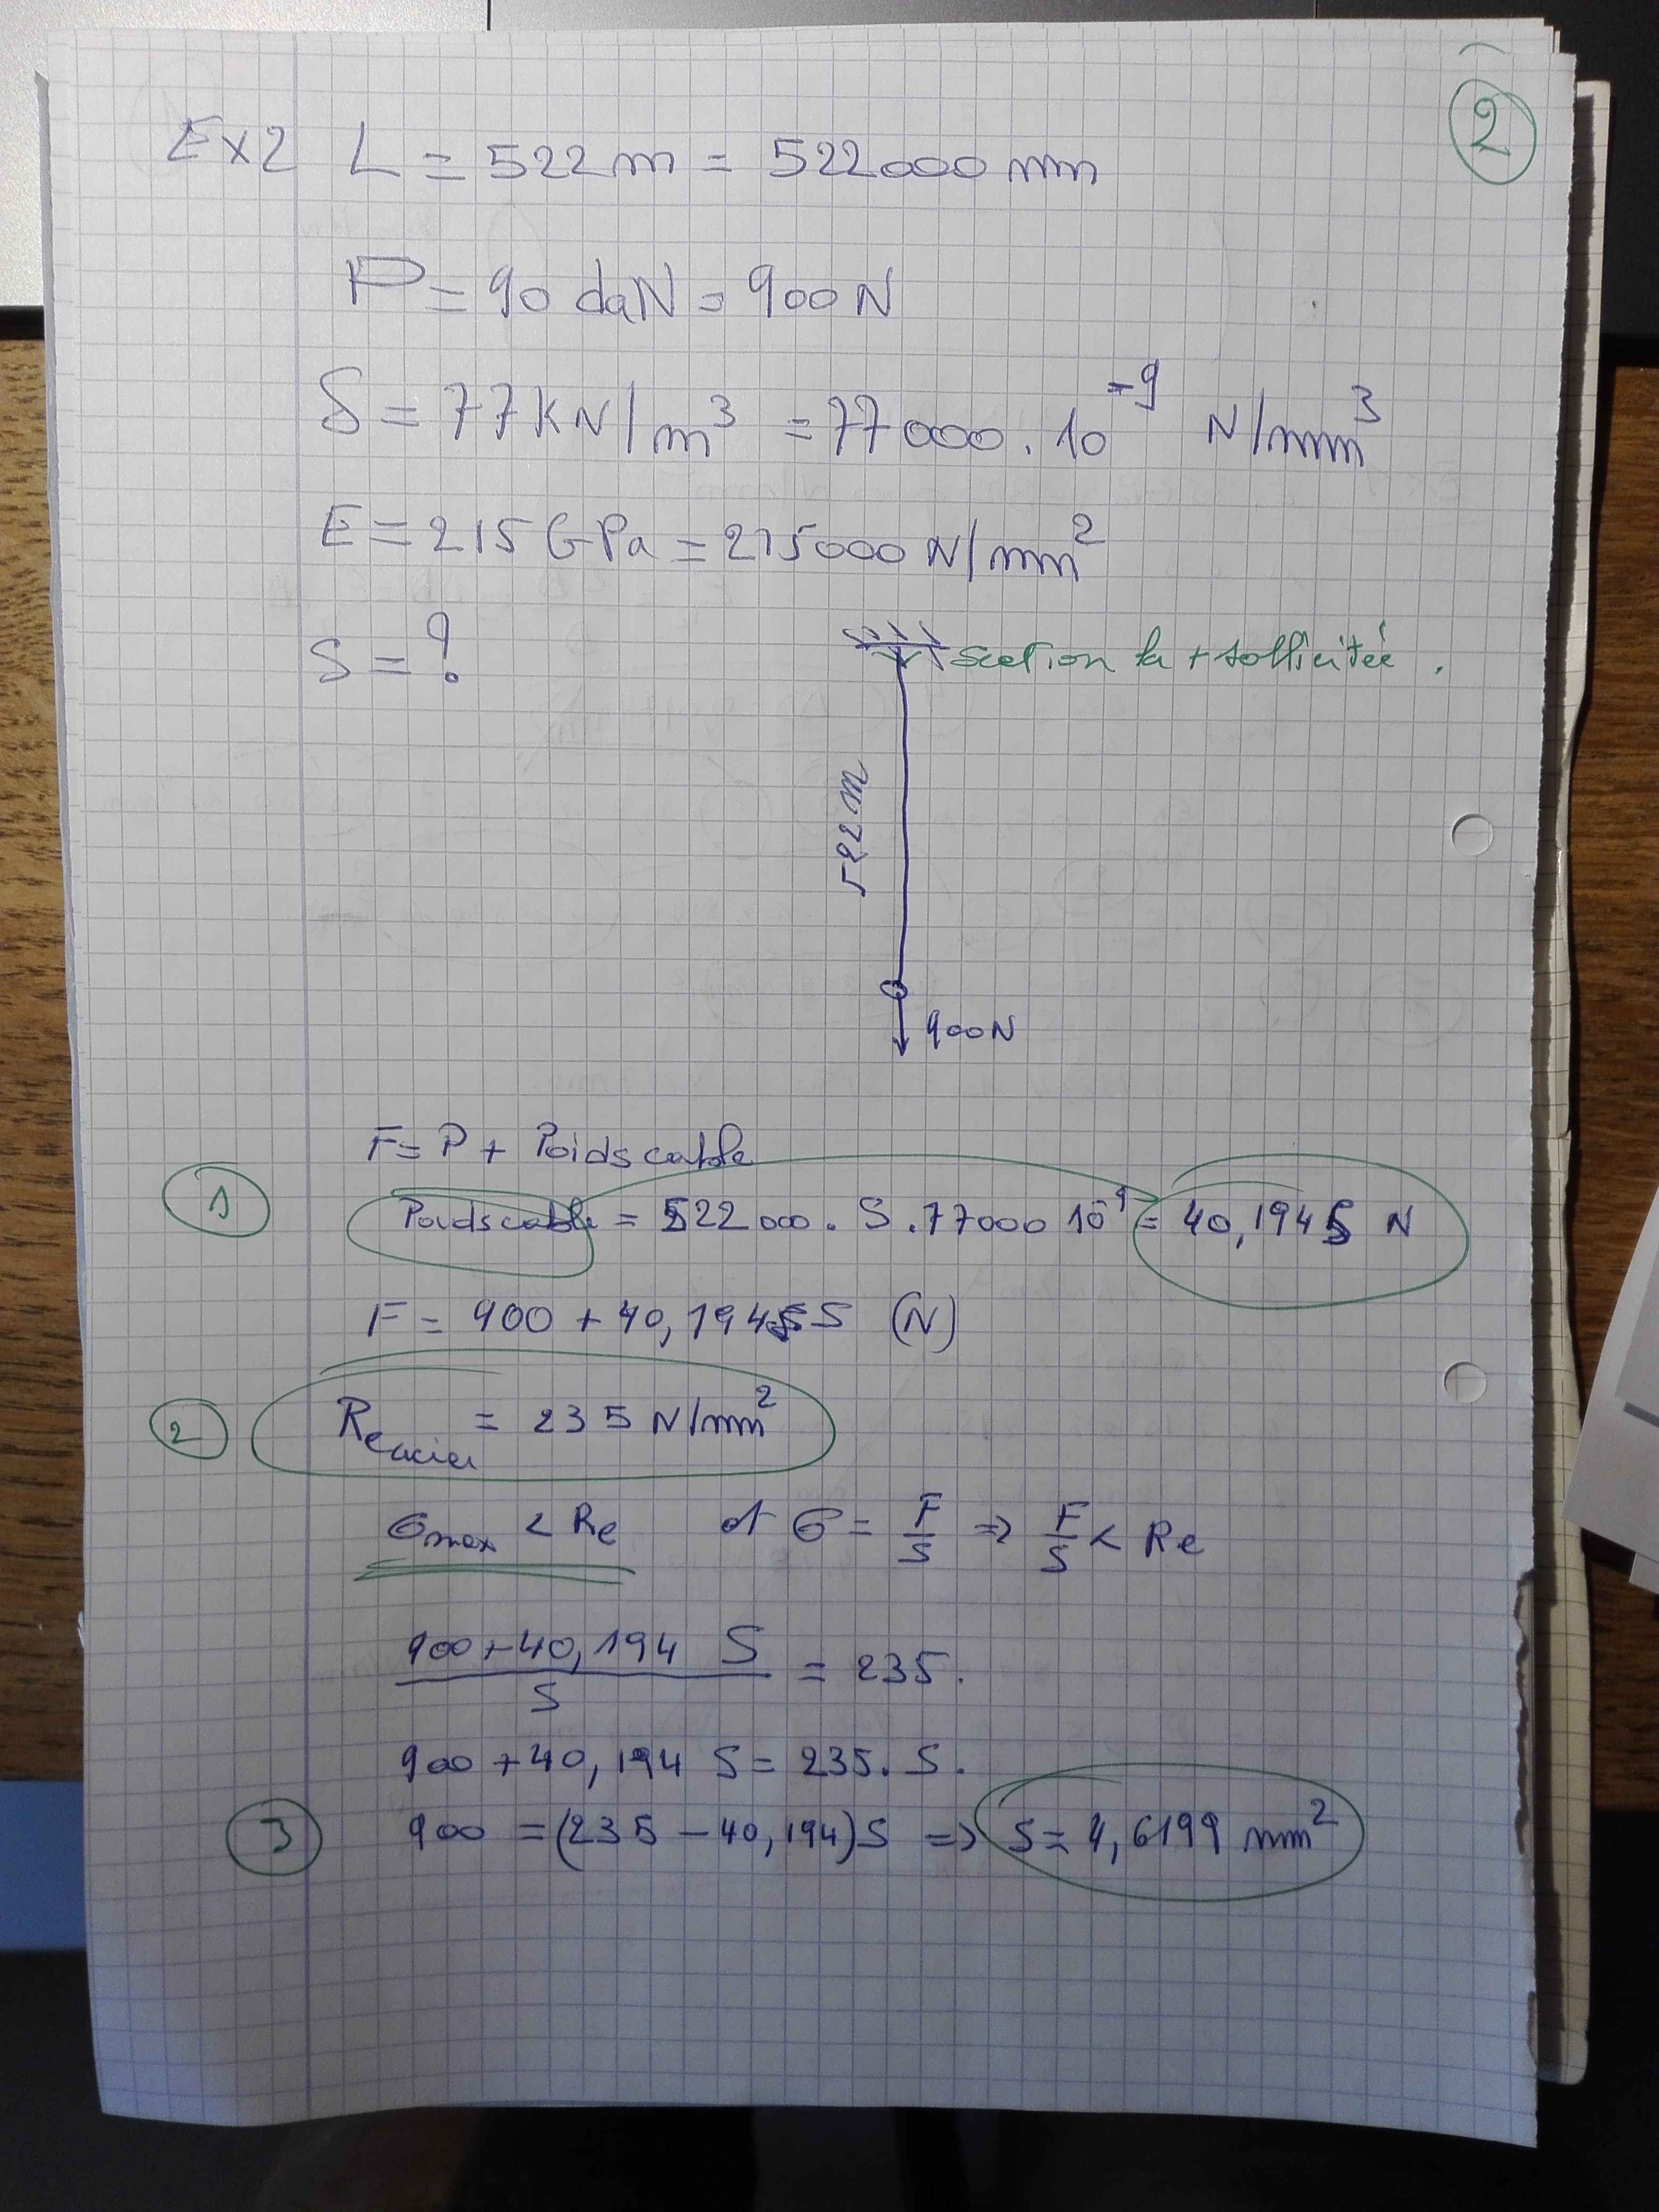 2
Ex2 L = 522 m = 522000 mm
P = 90 daN = 900 N
δ = 77 KN/m³ = 77000 . 10⁻⁹ N/mm³
E = 215 GPa = 215000 N/mm²
S = ?
section la + sollicitée .
522 m
900 N
F = P + Poids cable
1 Poids cable = 522000 . S . 77000 10⁻⁹ = 40,194 S N
F = 900 + 40,194 S (N)
2 Re acier = 235 N/mm²
σmax < Re et σ = F/S => F/S < Re
(900 + 40,194 S)/S = 235.
900 + 40,194 S = 235. S.
3 900 = (235 - 40,194) S => S = 4,6199 mm²